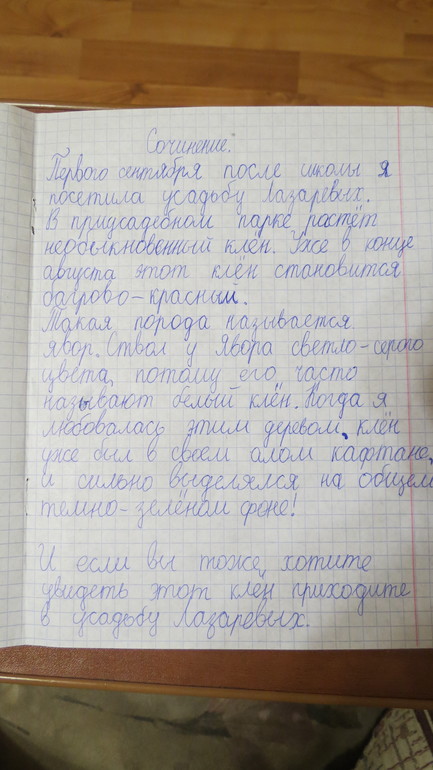 Сочинение.
Первого сентября после школы я
посетила усадьбу Лазаревых.
В придусадебном парке растёт
необыкновенный клён. Уже в конце
августа этот клён становится
багрово-красный.
Такая порода называется
явор. Ствол у явора светло-серого
цвета, потому его часто
называют белый клён. Когда я
любовалась этим деревом, клён
уже был в своем алом кафтане,
и сильно выделялся на общем
темно-зелёном фоне!
И если вы тоже, хотите
увидеть этот клён приходите
в усадьбу Лазаревых.